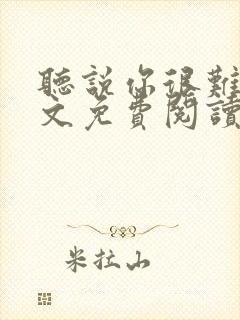 聽說你很難
文免費閱讀
米拉山